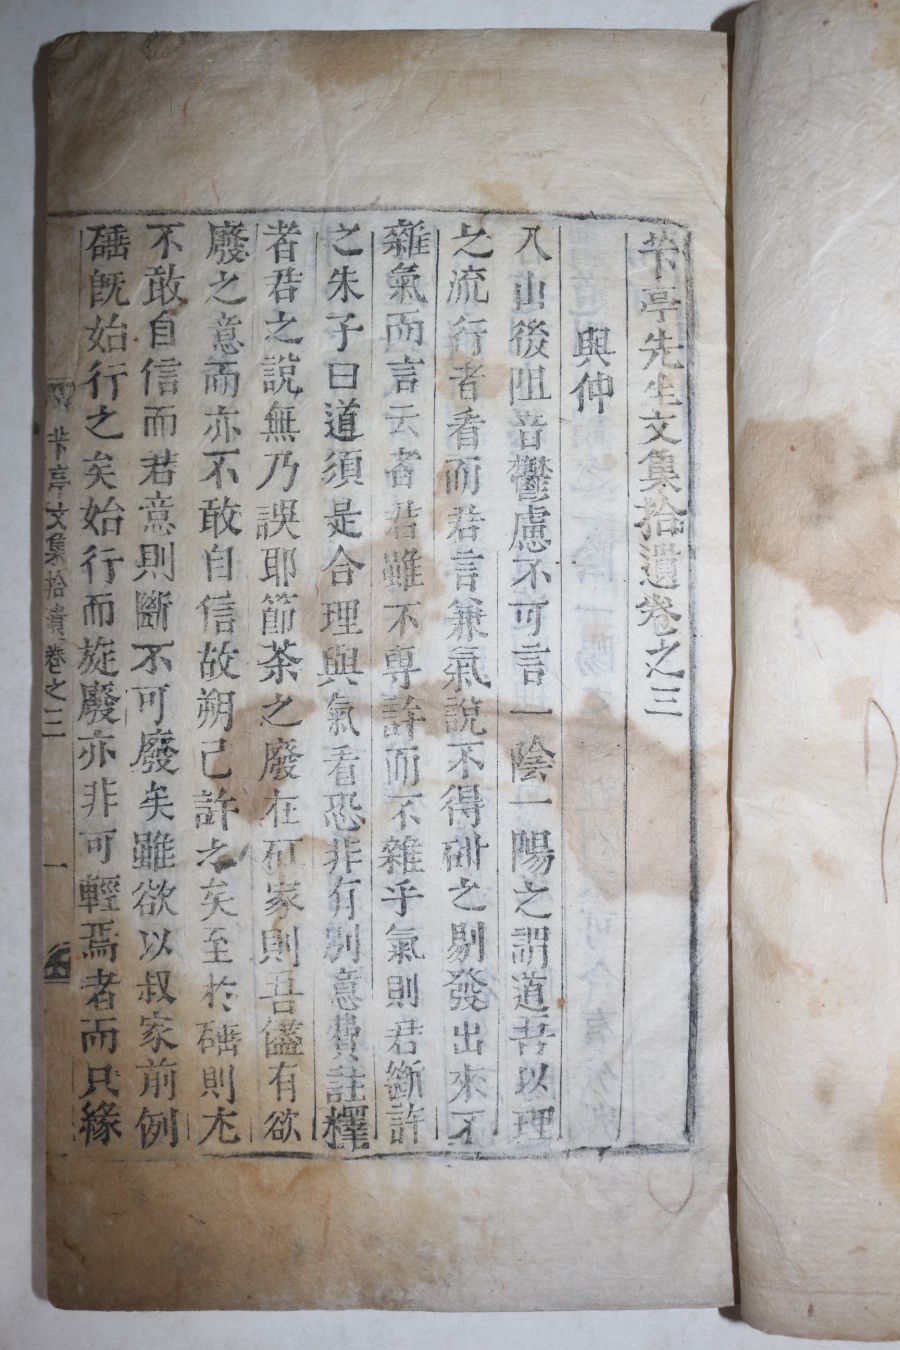 芐亭先生文集拾遺卷之三
與仲
入山後阻音鬱慮不可言一陰一陽之謂道吾以理
之流行者看而君言兼氣說不得砒之剔發出來不
雜氣而言云者君雖不專許而不雜乎氣則君斷許
之朱子曰道須是合理與氣看恐非有別意費註釋
者君之說無乃誤耶節茶之廢在砥家則吾儘有欲
廢之意而亦不敢自信故朔已許之矣至於𥕊則尤
不敢自信而若意則斷不可廢矣雖欲以叔家前例
既始行之矣始行而旋廢亦非可輕焉者而只緣
芐亭文集拾遺卷之三
一